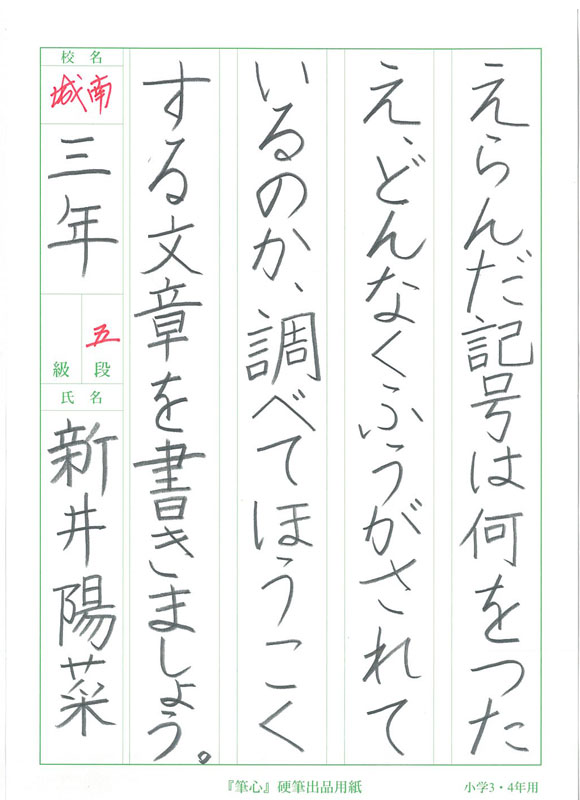 えらんだ記号は何をつた
え、どんなくふうがされて
いるのか、調べてほうこく
する文章を書きましょう。
校名
城南
三年
五段
級
氏名
新井陽菜
『筆心』硬筆出品用紙
小学3・4年用